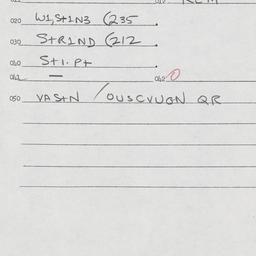 020 W1,St1N3 G235
030 StR1ND G212
060 St1.Pt
061 — 062 0
050 VAStN / OUSCVUGN QR